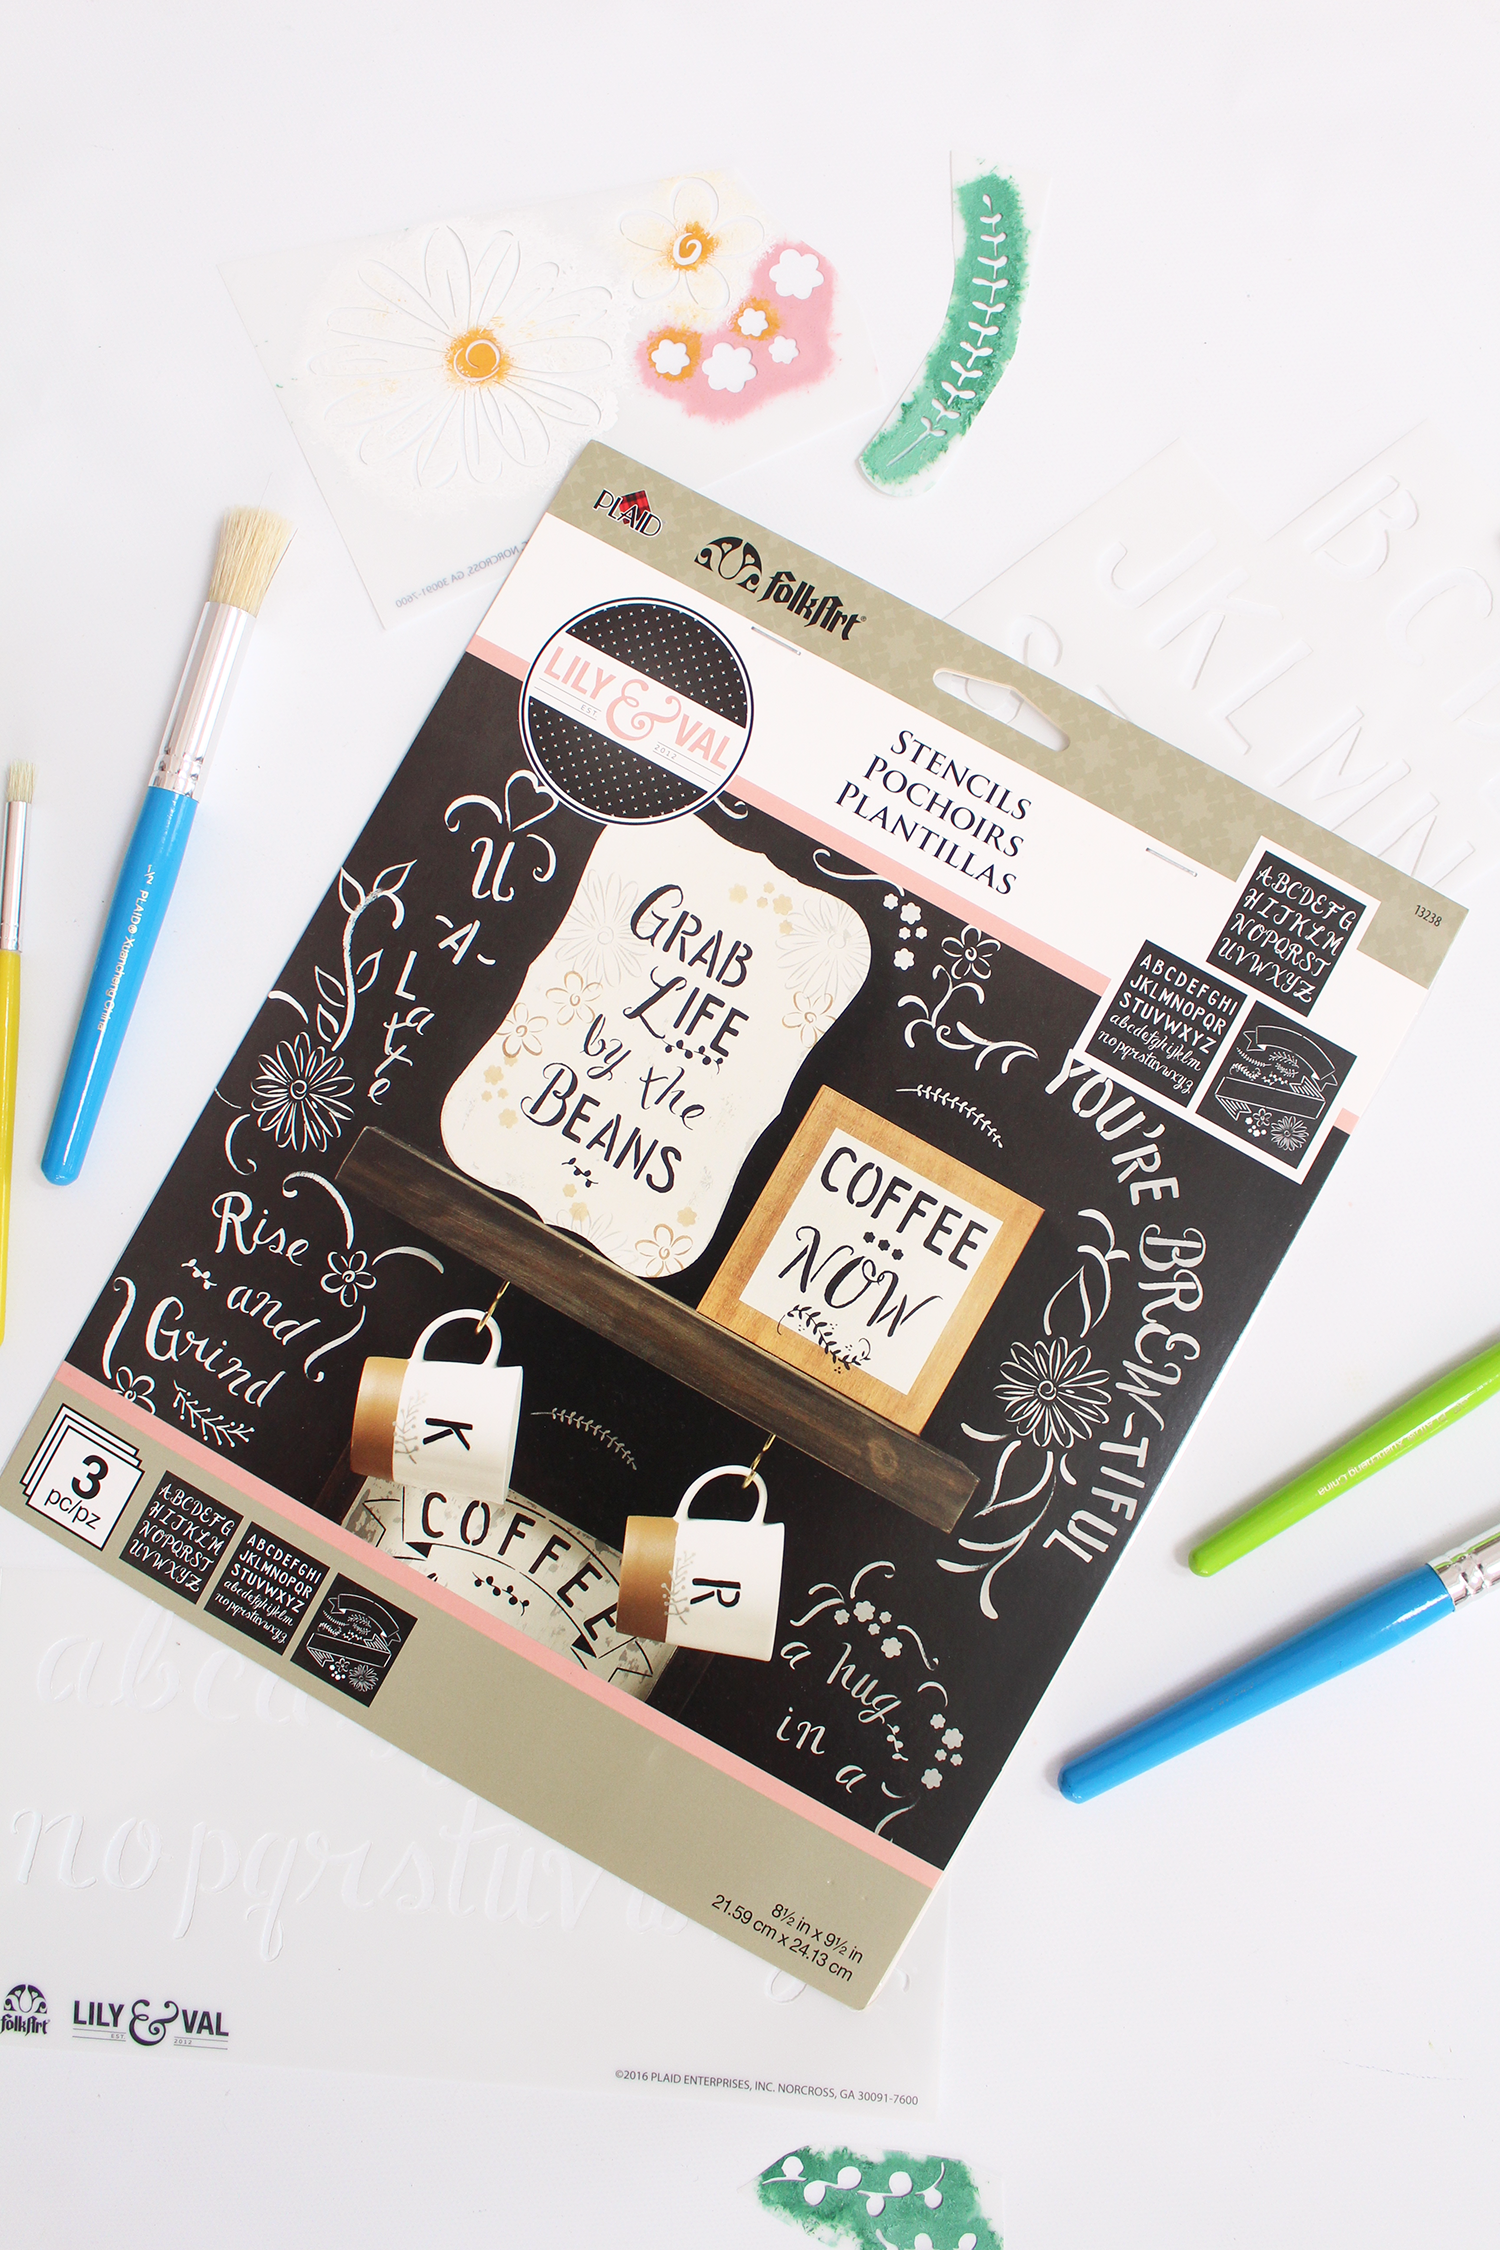 NORCROSS, GA 30091-7600
PLAID
folkArt®
LILY & VAL
EST 2012
STENCILS
POCHOIRS
PLANTILLAS
13238
ABCDEFG
HIJKLM
NOPQRST
UVWXYZ
ABCDEFGHI
JKLMNOPQR
STUVWXYZ
abcdefghijklm
nopqrstuvwxyz
U
-A-
Latte
GRAB
LIFE
by the
BEANS
COFFEE
NOW
YOU'RE BREW-TIFUL
Rise
and
Grind
K
R
COFFEE
a hug
in a
3
pc/pz
ABCDEFG
HIJKLM
NOPQRST
UVWXYZ
ABCDEFGHI
JKLMNOPQR
STUVWXYZ
abcdefghijklm
nopqrstuvwxyz
8½ in x 9½ in
21.59 cm x 24.13 cm
1/2 PLAID® Xuancheng China
BC
JKL MN
abcd
nopqrstuv
folkArt
LILY & VAL
EST 2012
©2016 PLAID ENTERPRISES, INC. NORCROSS, GA 30091-7600